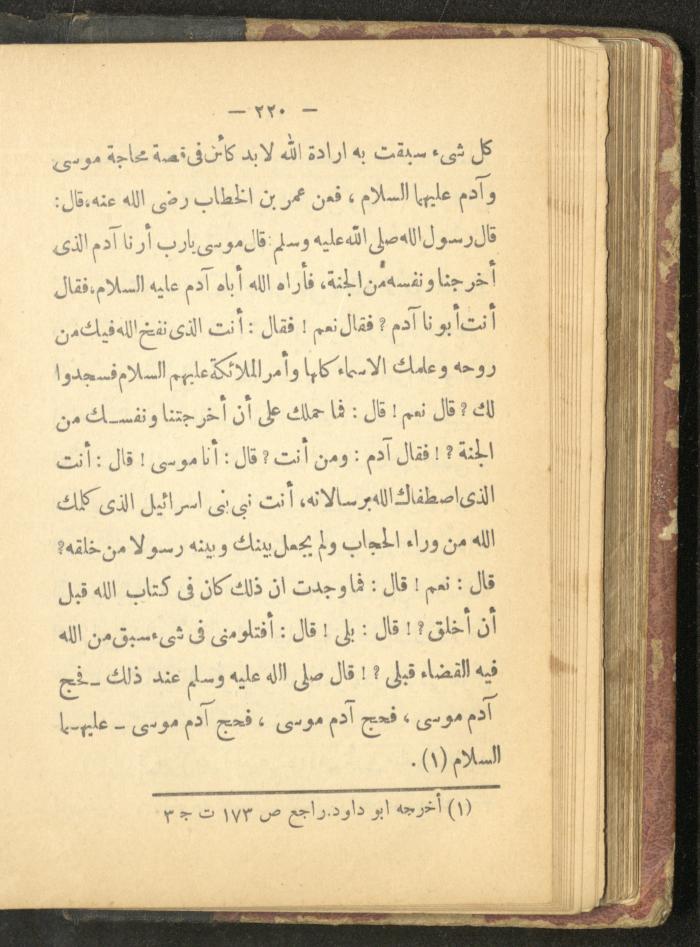 — ٢٢٠ —
كل شىء سبقت به ارادة الله لا بد كائن فى قصة محاجة موسى
وآدم عليهما السلام ، فعن عمر بن الخطاب رضى الله عنه،قال:
قال رسول الله صلى الله عليه وسلم : قال موسى يارب أرنا آدم الذى
أخرجنا ونفسه من الجنة، فأراه الله أباه آدم عليه السلام،فقال
أنت أبونا آدم ? فقال نعم ! فقال : أنت الذى نفخ الله فيك من
روحه وعلمك الاسماء كلها وأمر الملائكة عليهم السلام فسجدوا
لك ? قال نعم ! قال : فما حملك على أن أخرجتنا ونفسك من
الجنة ? ! فقال آدم : ومن أنت ? قال : أنا موسى ! قال : أنت
الذى اصطفاك الله برسالاته، أنت نبي بنى اسرائيل الذى كلمك
الله من وراء الحجاب ولم يجعل بينك وبينه رسولا من خلقه?
قال : نعم ! قال : فما وجدت ان ذلك كان فى كتاب الله قبل
أن أخلق ? ! قال : بلى ! قال : أفتلومنى فى شىء سبق من الله
فيه القضاء قبلى ? ! قال صلى الله عليه وسلم عند ذلك ـ فحج
آدم موسى ، فحج آدم موسى ، فحج آدم موسى ـ عليهما
السلام (١) .
(١) أخرجه ابو داود.راجع ص ١٧٣ ت ج ٣